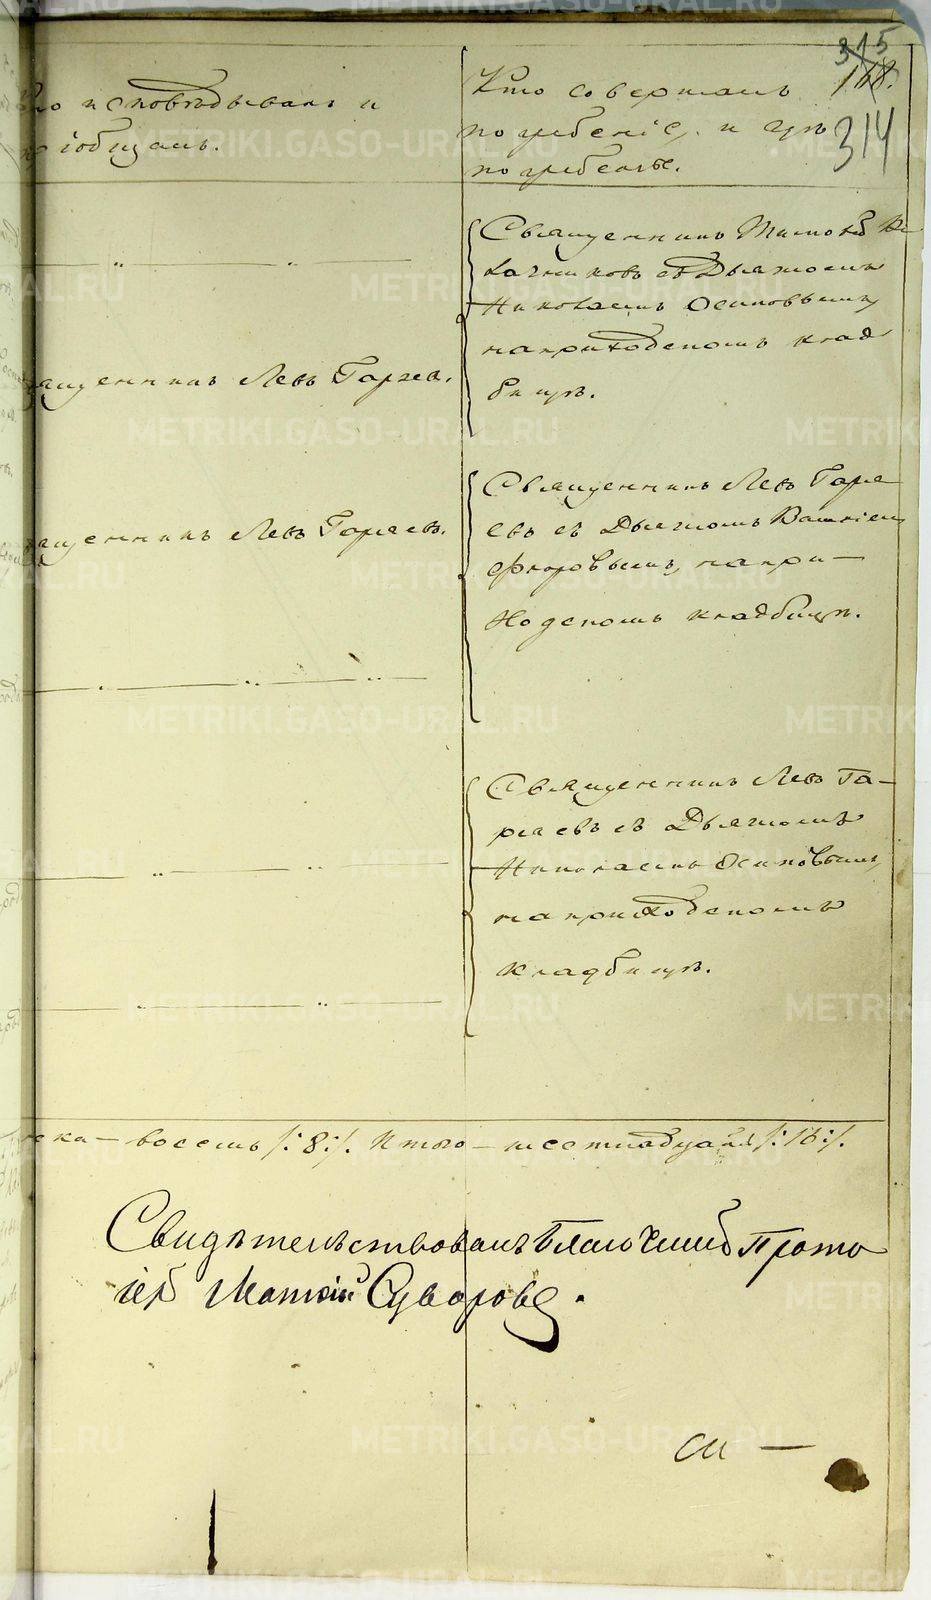 315
168.
314
Кто исповѣдывалъ и
пріобщалъ.
Кто совершалъ
погребеніе, и гдѣ
погребены.
Священникъ
съ Дьячкомъ
Николаемъ Осиповымъ,
на приходскомъ клад
бищѣ.
Священникъ Левъ Гаряев.
Священникъ Левъ Гаря
евъ съ Дьячкомъ
Флоровымъ, на при—
ходскомъ кладбищѣ.
Священникъ Левъ Гаряевъ.
Священникъ Левъ Га—
ряевъ съ Дьячкомъ
Николаемъ Осиповымъ,
на приходскомъ
кладбищѣ.
ска — восемь /:8:/. Итого — шестнадцать /:16:/.
Свидѣтельствовалъ Благочинный Прото
іерей Матѳій Суворовъ.